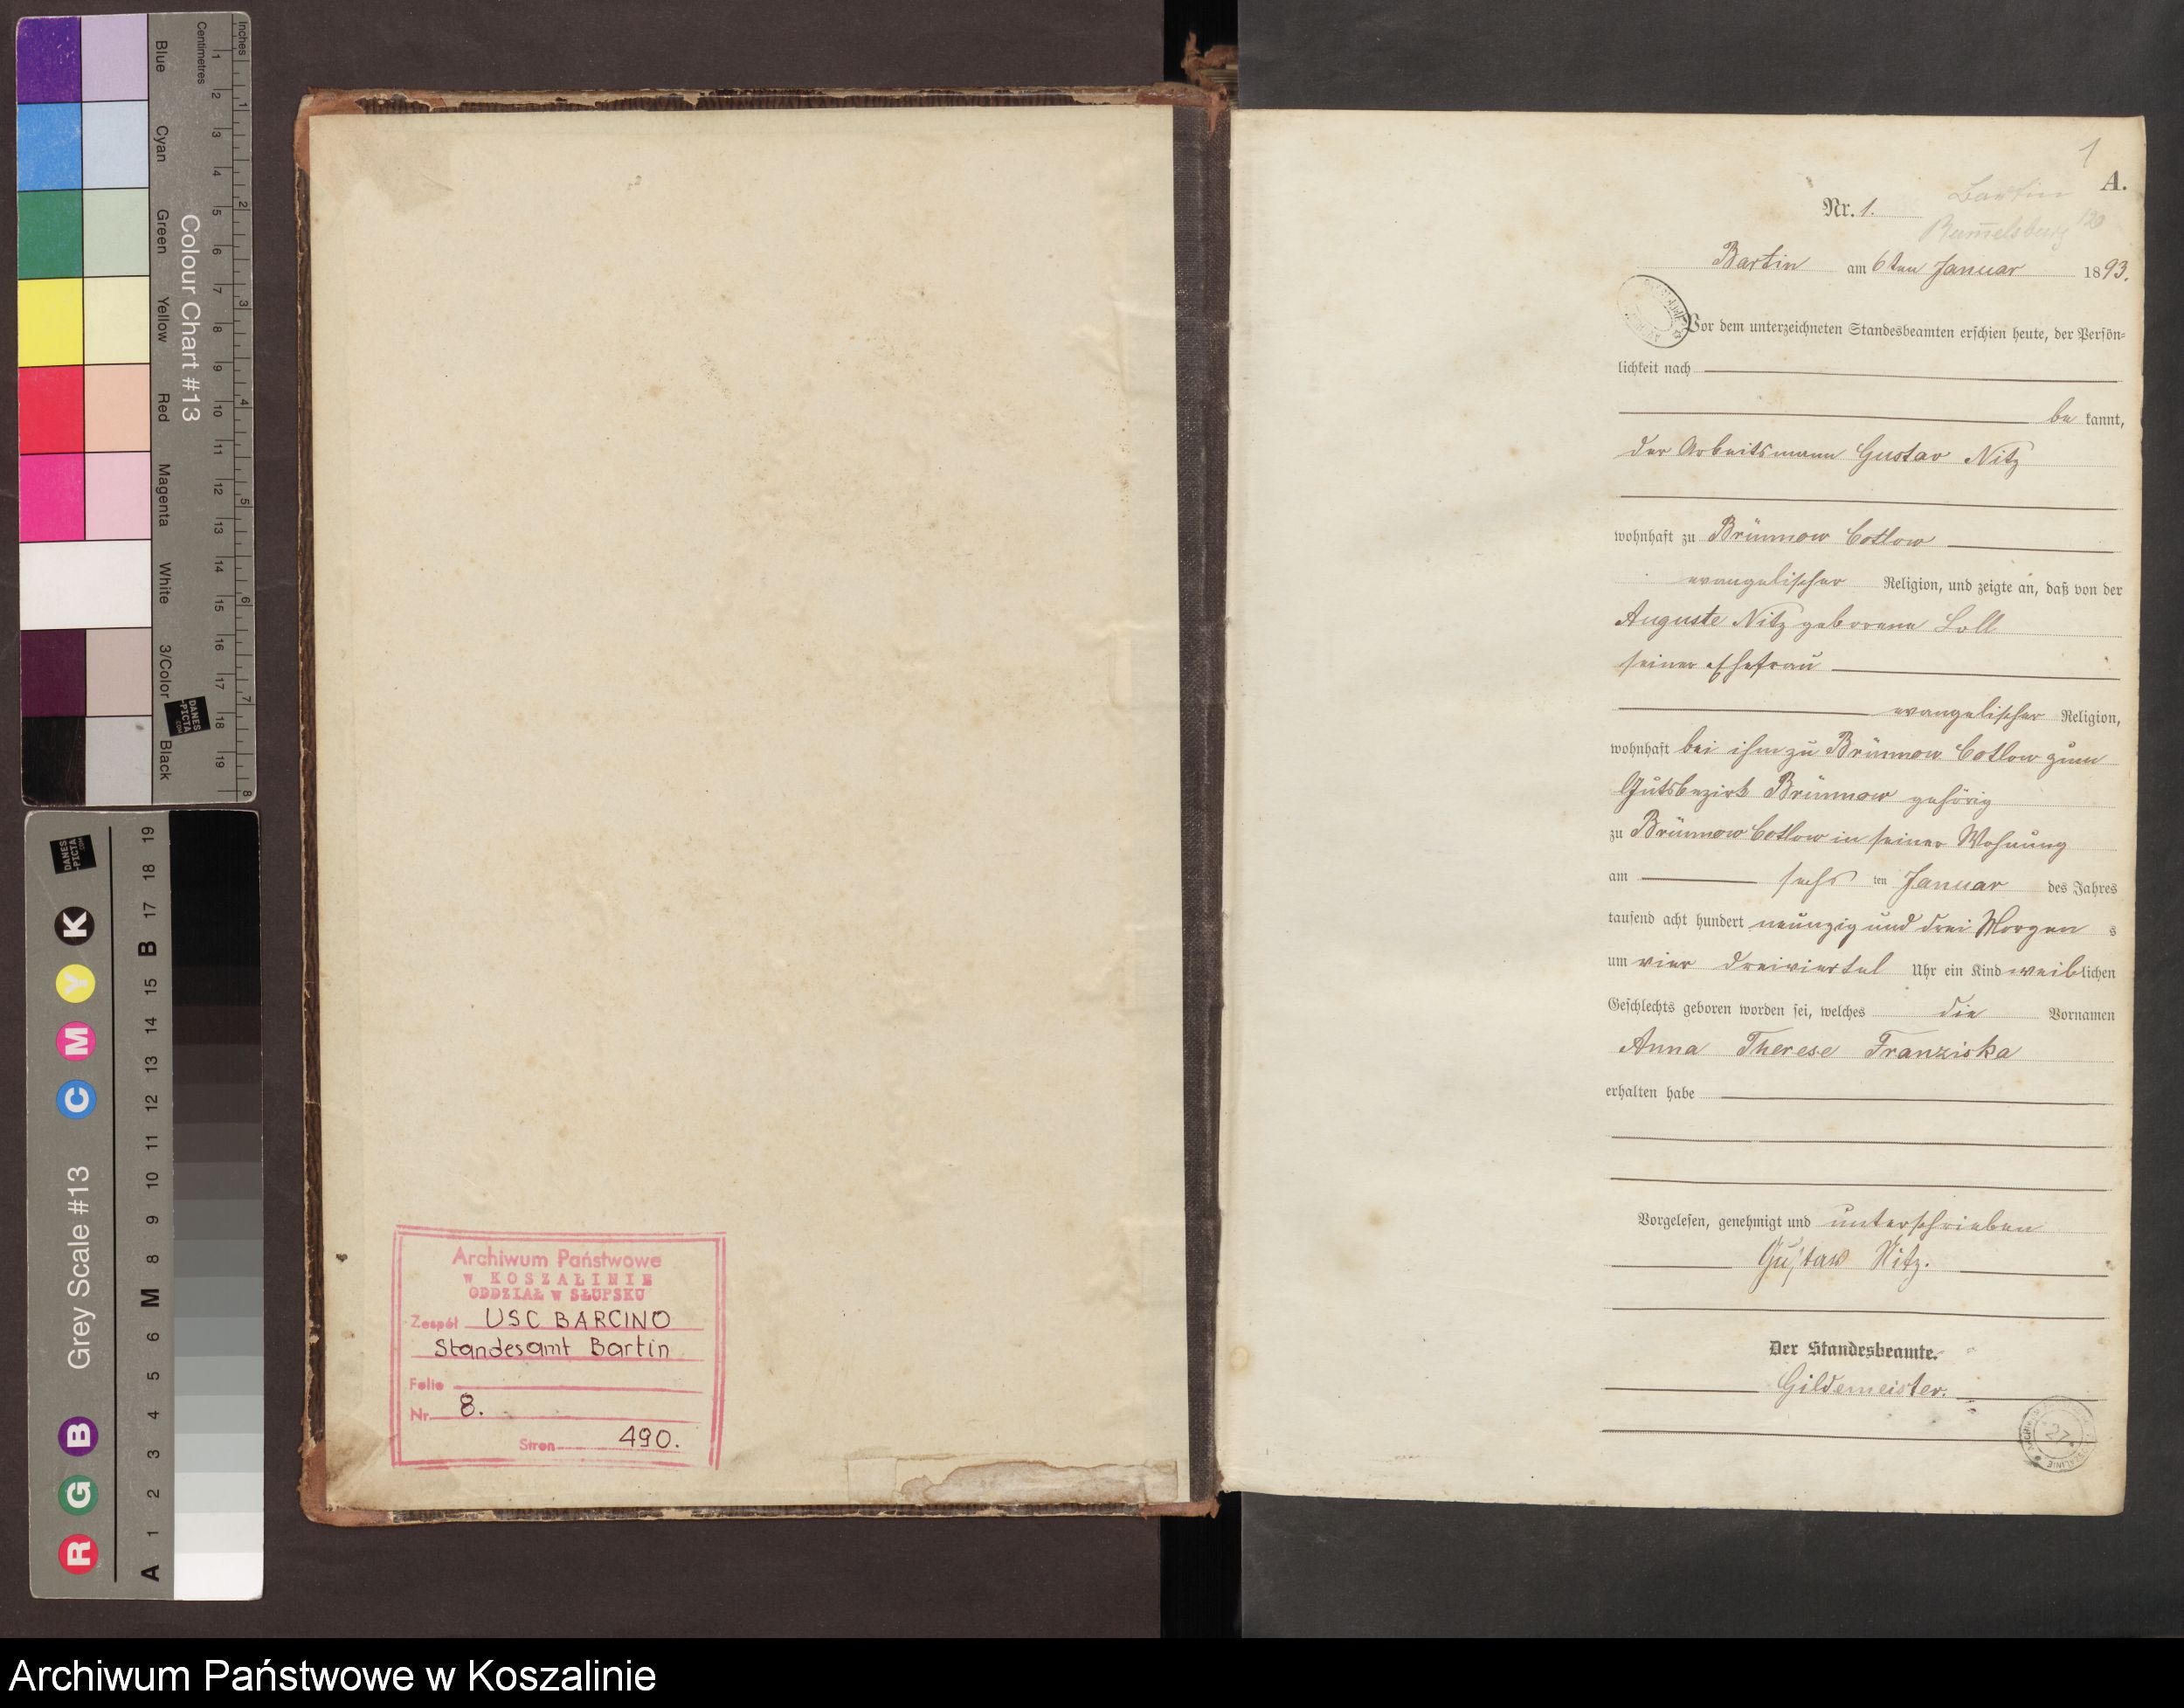 Inches
Centimetres
1 2 3 4 5 6 7 8 9 10 11 12 13 14 15 16 17 18 19
1 2 3 4 5 6 7 8
Colour Chart #13
Blue Cyan Green Yellow Red Magenta White 3/Color Black
DANES
-PICTA
.COM
Grey Scale #13
R G B C M Y K
A 1 2 3 4 5 6 M 8 9 10 11 12 13 14 15 B 17 18 19
DANES
-PICTA
.COM
Archiwum Państwowe
w KOSZALINIE
ODDZIAŁ w SŁUPSKU
Zespół USC BARCINO
Standesamt Bartin
Folio
Nr. 8.
Stron 490.
1
A.
Bartin
Nr. 1.
Rummelsburg 120
Bartin am 6ten Januar 1893.
Vor dem unterzeichneten Standesbeamten erschien heute, der Persön-
lichkeit nach
be kannt,
der Arbeitsmann Gustav Nitz
wohnhaft zu Brünnow Cotlow
evangelischer Religion, und zeigte an, daß von der
Auguste Nitz geborene Loll
seiner Ehefrau
evangelischer Religion,
wohnhaft bei ihm zu Brünnow Cotlow zum
Gutsbezirk Brünnow gehörig
zu Brünnow Cotlow in seiner Wohnung
am sechs ten Januar des Jahres
tausend acht hundert neunzig und drei Morgen s
um vier dreiviertel Uhr ein Kind weiblichen
Geschlechts geboren worden sei, welches die Vornamen
Anna Therese Franziska
erhalten habe
Vorgelesen, genehmigt und unterschrieben
Gustav Nitz.
Der Standesbeamte.
Gildemeister.
27
Archiwum Państwowe w Koszalinie